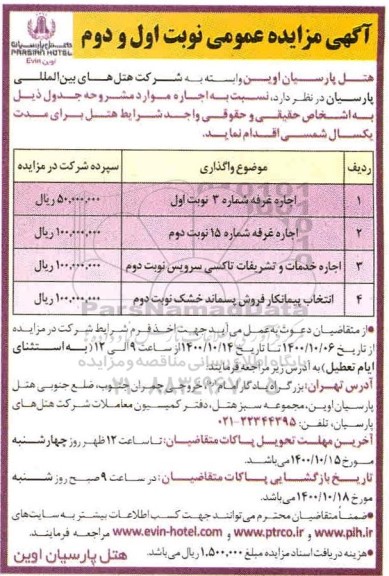 هتل پارسیان
PARSIAN HOTEL
نوین Evin
آگهی مزایده عمومی نوبت اول و دوم
هتل پارسیان اوین وابسته به شرکت هتل‌های بین‌المللی
پارسیان در نظر دارد، نسبت به اجاره موارد مشروحه جدول ذیل
به اشخاص حقیقی و حقوقی واجد شرایط هتل برای مدت
یکسال شمسی اقدام نماید.
ردیف موضوع واگذاری سپرده شرکت در مزایده
۱ اجاره غرفه شماره ۳ نوبت اول ۵۰,۰۰۰,۰۰۰ ریال
۲ اجاره غرفه شماره ۱۵ نوبت دوم ۱۰۰,۰۰۰,۰۰۰ ریال
۳ اجاره خدمات و تشریفات تاکسی سرویس نوبت دوم ۱۰۰,۰۰۰,۰۰۰ ریال
۴ انتخاب پیمانکار فروش پسماند خشک نوبت دوم ۱۰۰,۰۰۰,۰۰۰ ریال
ParsNamadData
پایگاه اطلاع رسانی مناقصه و مزایده
•از متقاضیان دعوت به عمل می‌آید جهت اخذ فرم شرایط شرکت در مزایده
از تاریخ ۱۴۰۰/۱۰/۰۶ تا تاریخ ۱۴۰۰/۱۰/۱۴ از ساعت ۹ الی ۱۲ (به استثنای
ایام تعطیل) به آدرس زیر مراجعه فرمایند.
آدرس تهران: بزرگراه یادگار امام (ره)، خروجی چمران جنوب، ضلع جنوبی هتل
پارسیان اوین، مجموعه سبز هتل، دفتر کمیسیون معاملات شرکت هتل‌های
پارسیان، تلفن: ۰۲۱-۲۲۳۴۴۳۹۵
آخرین مهلت تحویل پاکات متقاضیان: تا ساعت ۱۲ ظهر روز چهارشنبه
مورخ ۱۴۰۰/۱۰/۱۵ می‌باشد.
تاریخ بازگشایی پاکات متقاضیان: در ساعت ۹ صبح روز شنبه
مورخ ۱۴۰۰/۱۰/۱۸ می‌باشد.
•ضمناً متقاضیان محترم می‌توانند جهت کسب اطلاعات بیشتر به سایت‌های
www.pih.ir و www.ptrco.ir و www.evin-hotel.com مراجعه فرمایند.
•هزینه دریافت اسناد مزایده مبلغ ۱,۵۰۰,۰۰۰ ریال می‌باشد.
هتل پارسیان اوین